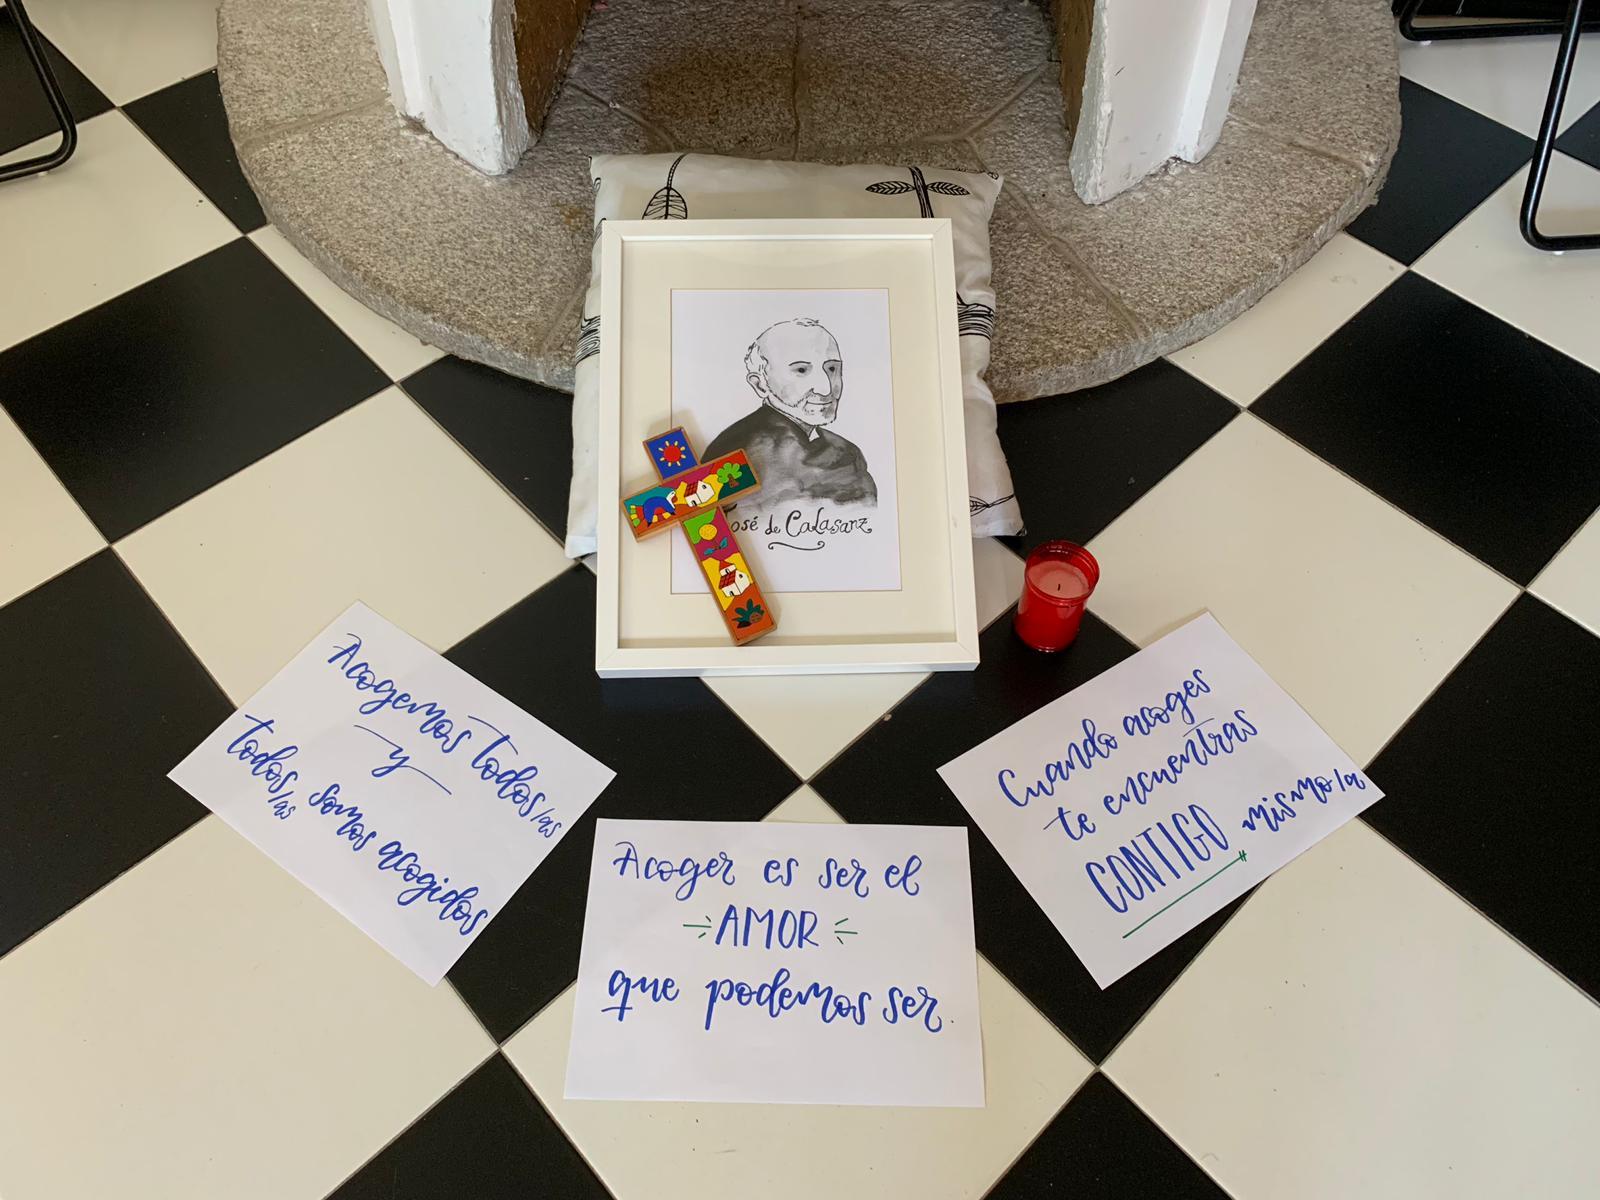 José de Calasanz
Acogemos todos/as
y
todos/as somos acogidos
Acoger es ser el
AMOR
que podemos ser.
Cuando acoges
te encuentras
CONTIGO mismo/a